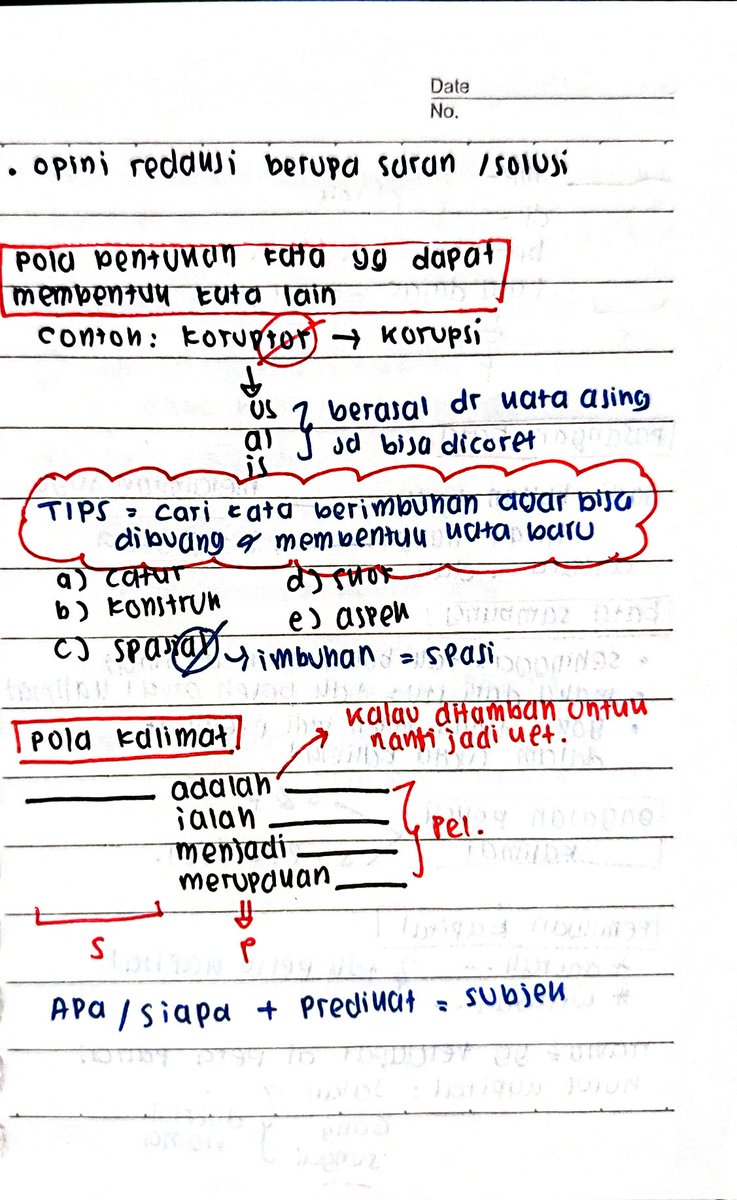 Date
No.
• opini redaksi berupa saran / solusi
Pola bentukan kata yg dapat
membentuk kata lain
contoh: koruptor → korupsi
us
al
is
berasal dr kata asing
jd bisa dicoret
TIPS = cari kata berimbuhan agar bisa
dibuang & membentuk kata baru
a) catur
b) konstruk
c) spasial → imbuhan = spasi
d) fuor
e) aspek
Pola kalimat
kalau ditambah untuk
nanti jadi ket.
adalah
ialah
menjadi
merupakan
Pel.
S
P
Apa / siapa + Predikat = subjek